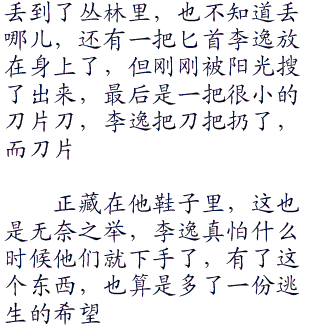 丢到了丛林里，也不知道丢
哪儿，还有一把匕首李逸放
在身上了，但刚刚被阳光搜
了出来，最后是一把很小的
刀片刀，李逸把刀把扔了，
而刀片
正藏在他鞋子里，这也
是无奈之举，李逸真怕什么
时候他们就下手了，有了这
个东西，也算是多了一份逃
生的希望